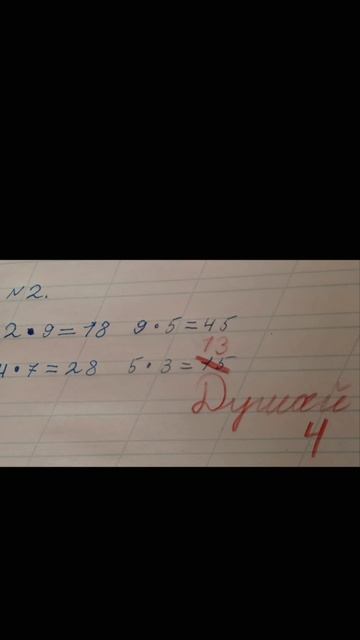 №2.
2 • 9 = 18 9 • 5 = 45
13
4 • 7 = 28 5 • 3 = 15
Думай
4